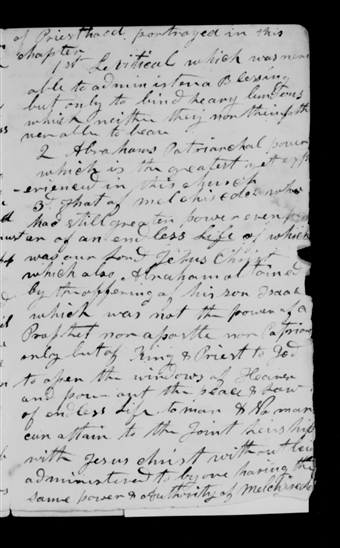 of Priesthood, portrayed in this
chapter
1st Levitical which was never
able to administer a Blessing
but only to bind heavy burdens
which neither they nor their fath
ner able to bear
2 Abrahams Patriarchal power
which is the greatest yet exp
erienced in this church
3d That of Melchisedec who
had still greater power even pow
er of an endless Life of which
was our Lord Jesus Christ
which also Abraham obtained
by the offering of his son Isaac
which was not the power of a
Prophet nor apostle nor Patriarch
only but of King & Priest to God
to open the windows of Heaven
and pour out the peace & Law
of endless Life to man & No man
can attain to the Joint heirship
with Jesus christ without being
administered to by one having the
same power & Authority of Melchisedec